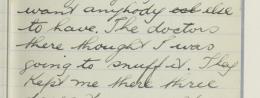 want anybody else
to have. The doctors
there thought I was
going to snuff it. They
kept me there three